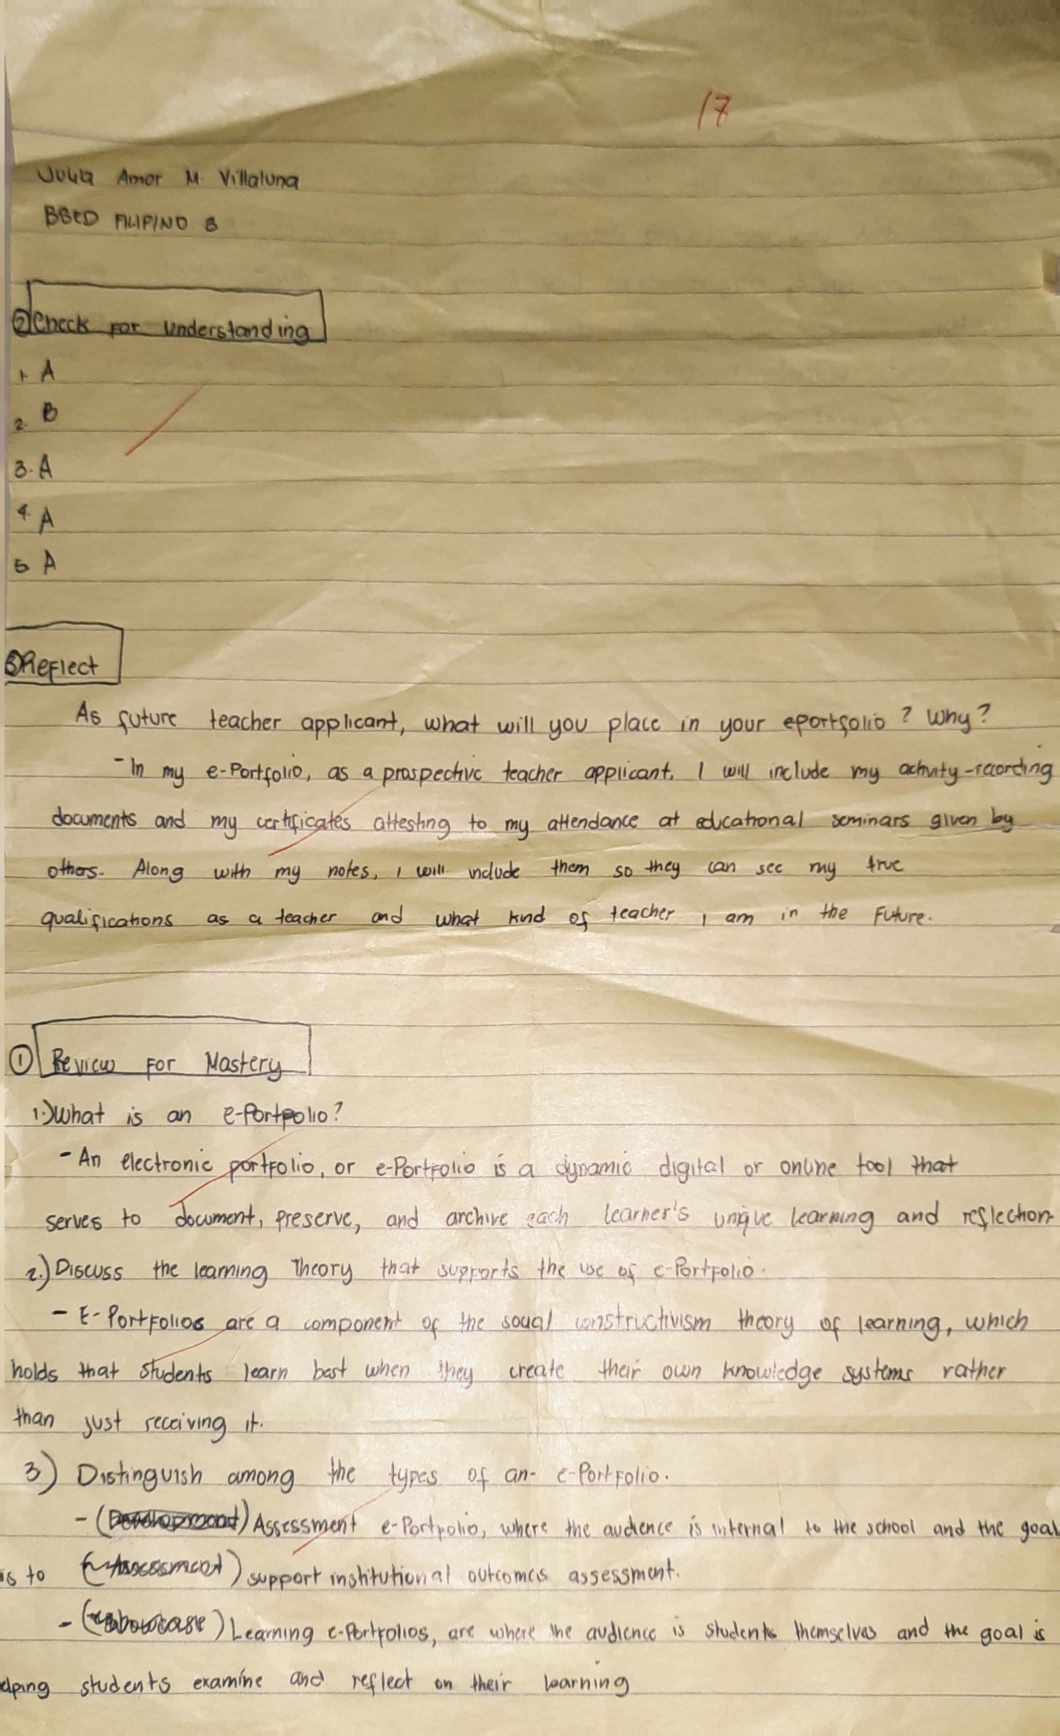 17
Julia Amor M. Villaluna
BSED FILIPINO 3
② Check for Understanding
1. A
2. B
3. A
4. A
5 A
③ Reflect
As future teacher applicant, what will you place in your eportfolio? Why?
- In my e-Portfolio, as a prospective teacher applicant. I will include my activity-recording
documents and my certificates attesting to my attendance at educational seminars given by
others. Along with my notes, I will include them so they can see my true
qualifications as a teacher and what kind of teacher I am in the Future.
① Review For Mastery
1.) What is an e-Portfolio?
- An electronic portfolio, or e-Portfolio is a dynamic digital or online tool that
serves to document, preserve, and archive each learner's unique learning and reflection
2.) Discuss the learning Theory that supports the use of e-Portfolio.
- E-Portfolios are a component of the social constructivism theory of learning, which
holds that students learn best when they create their own knowledge systems rather
than just receiving it.
3) Distinguish among the types of an- e-Portfolio.
- (Development) Assessment e-Portfolio, where the audience is internal to the school and the goal
is to (Assessment) support institutional outcomes assessment.
- (showcase) Learning e-Portfolios, are where the audience is students themselves and the goal is
elping students examine and reflect on their learning